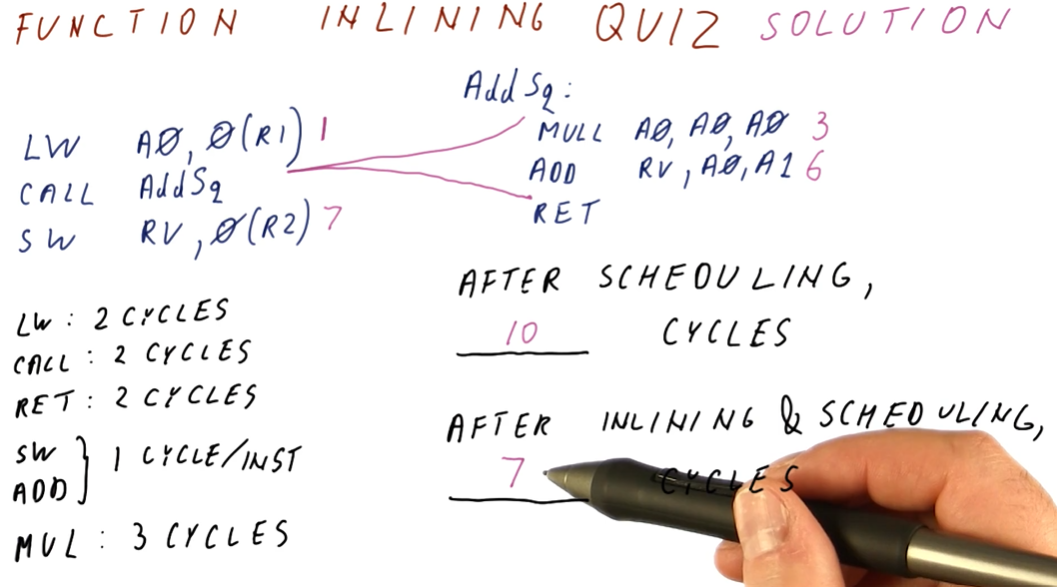 FUNCTION INLINING QUIZ SOLUTION
LW AØ, Ø(R1) 1
CALL AddSq
SW RV, Ø(R2) 7
AddSq:
MULL AØ, AØ, AØ 3
ADD RV, AØ, A1 6
RET
LW: 2 CYCLES
CALL: 2 CYCLES
RET: 2 CYCLES
SW
ADD } 1 CYCLE/INST
MUL: 3 CYCLES
AFTER SCHEDULING,
10 CYCLES
AFTER INLINING & SCHEDULING,
7 CYCLES